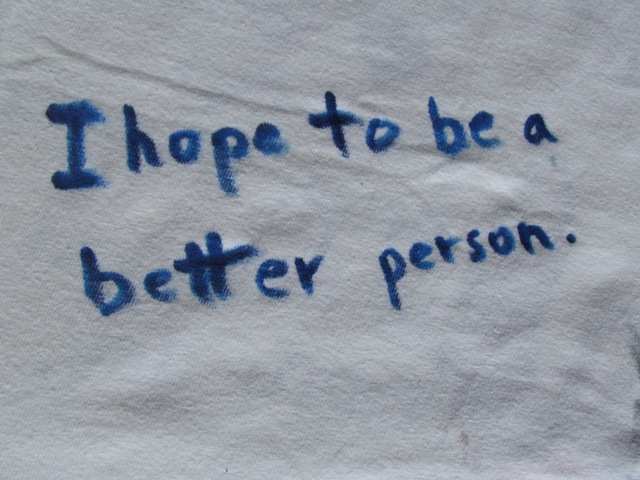 I hope to be a
better person.